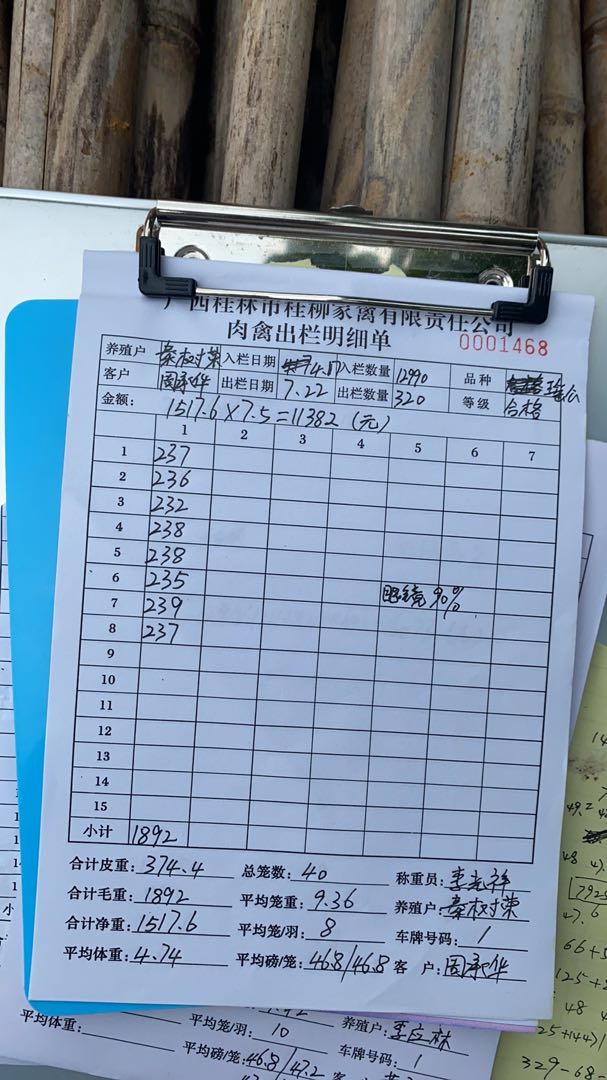 广西桂林市桂柳家禽有限责任公司
肉禽出栏明细单
0001468
养殖户 秦树荣 入栏日期 4.17 入栏数量 12990 品种
客户 周承华 出栏日期 7.22 出栏数量 320 等级 合格
金额: 1517.6×7.5=11382(元)
1 2 3 4 5 6 7
1 237
2 236
3 232
4 238
5 238
6 235 眼镜90%
7 239
8 237
9
10
11
12
13
14
15
小计 1892
合计皮重: 374.4 总笼数: 40 称重员: 李光祥
合计毛重: 1892 平均笼重: 9.36 养殖户: 秦树荣
合计净重: 1517.6 平均笼/羽: 8 车牌号码: 1
平均体重: 4.74 平均磅/笼: 46.8/46.8 客户: 周承华
平均体重: 平均笼/羽: 10 养殖户: 李应林
平均磅/笼: 46.8/47.2 车牌号码: 1
66+
125+
48
25+144)
329-68-